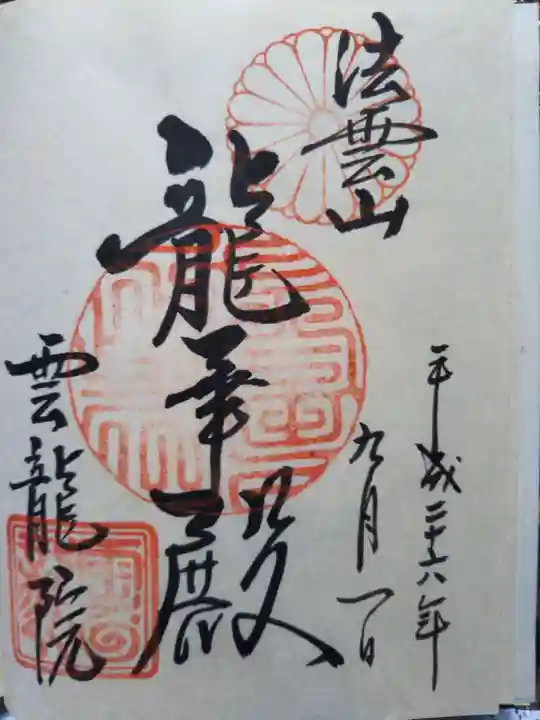 平成二十六年
九月一日
法雲山
龍華殿
雲龍院